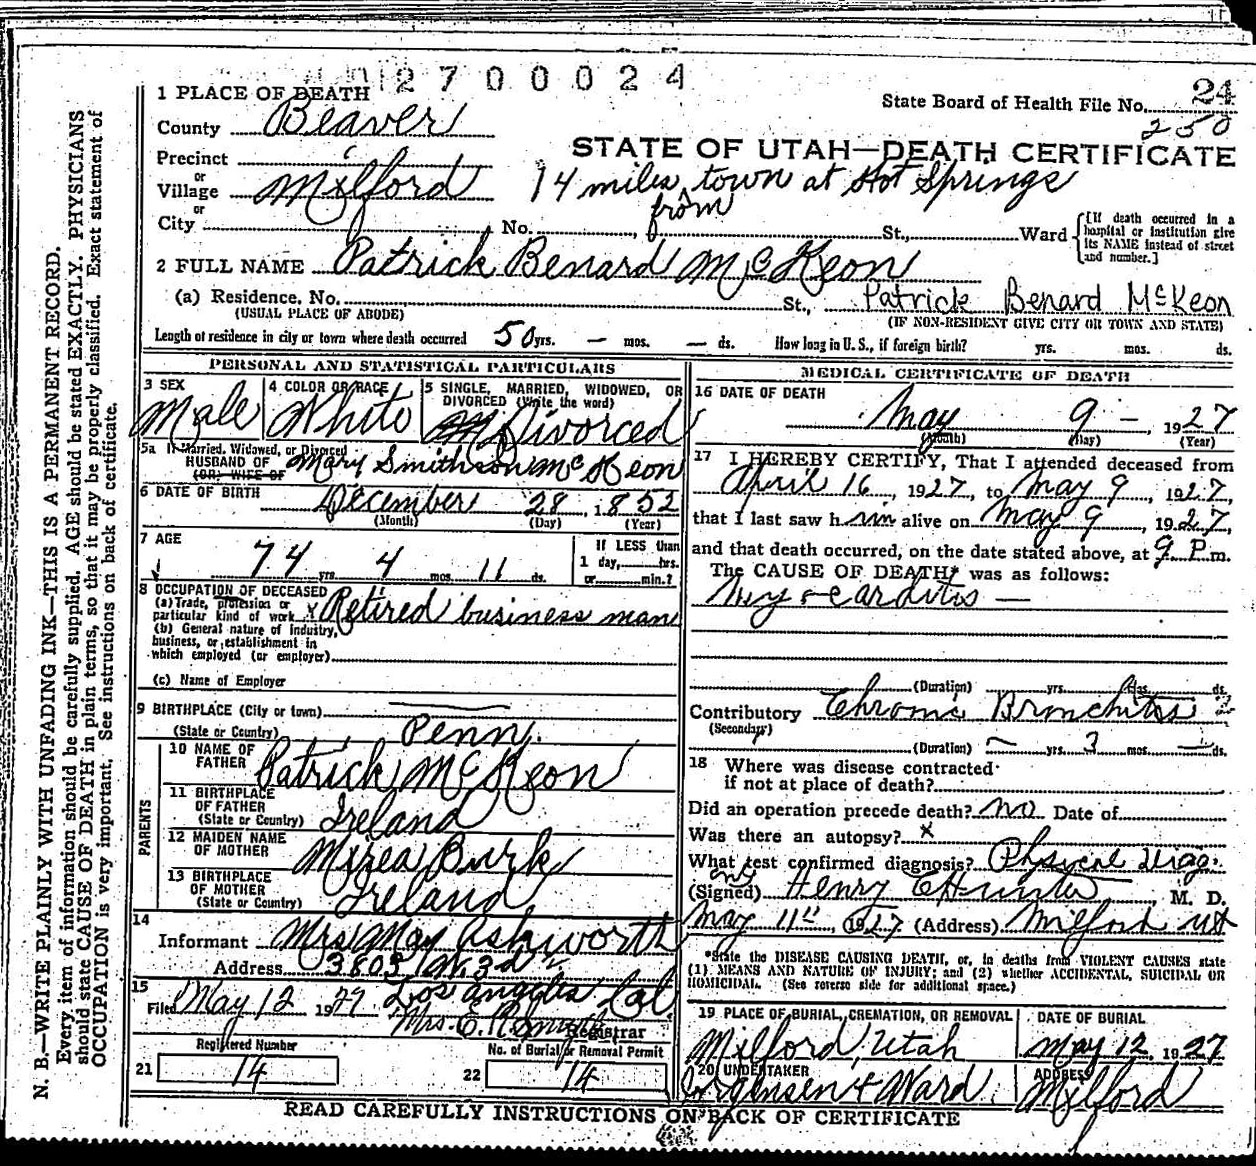 2700024
24
State Board of Health File No.
250
1 PLACE OF DEATH
County Beaver
STATE OF UTAH—DEATH CERTIFICATE
Precinct
or
Village Milford 14 miles from town at Hot Springs
or
City No. St., Ward
[If death occurred in a hospital or institution give its NAME instead of street and number.]
2 FULL NAME Patrick Benard McKeon
(a) Residence. No. St., Patrick Benard McKeon
(USUAL PLACE OF ABODE) (IF NON-RESIDENT GIVE CITY OR TOWN AND STATE)
Length of residence in city or town where death occurred 50 yrs. — mos. — ds. How long in U. S., if foreign birth? yrs. mos. ds.
PERSONAL AND STATISTICAL PARTICULARS
3 SEX Male
4 COLOR OR RACE White
5 SINGLE, MARRIED, WIDOWED, OR DIVORCED (Write the word) Divorced
5a If Married, Widowed, or Divorced
HUSBAND OF Mary Smithson McKeon
(OR) WIFE OF
6 DATE OF BIRTH December 28, 1852
(Month) (Day) (Year)
7 AGE 74 yrs. 4 mos. 11 ds.
If LESS than 1 day, hrs. or min.?
8 OCCUPATION OF DECEASED
(a) Trade, profession or particular kind of work x Retired business man
(b) General nature of industry, business, or establishment in which employed (or employer)
(c) Name of Employer
9 BIRTHPLACE (City or town)
(State or Country) Penn.
PARENTS
10 NAME OF FATHER Patrick McKeon
11 BIRTHPLACE OF FATHER (State or Country) Ireland
12 MAIDEN NAME OF MOTHER Burk
13 BIRTHPLACE OF MOTHER (State or Country) Ireland
14
Informant Mrs May Ashworth
Address 3803
Los Angeles Cal
15
Filed May 12 19 Mrs. E. R. Smyth Registrar
Registered Number No. of Burial or Removal Permit
21 14 22 14
MEDICAL CERTIFICATE OF DEATH
16 DATE OF DEATH
May 9 — 1927
(Month) (Day) (Year)
17 I HEREBY CERTIFY, That I attended deceased from
April 16, 1927, to May 9, 1927,
that I last saw him alive on May 9, 1927,
and that death occurred, on the date stated above, at 9 P.m.
The CAUSE OF DEATH* was as follows:
Myo-carditis —
(Duration) yrs. mos. ds.
Contributory Chronic Bronchitis
(Secondary)
(Duration) — yrs. 3 mos. — ds.
18 Where was disease contracted
if not at place of death?
Did an operation precede death? no Date of
Was there an autopsy? x
What test confirmed diagnosis? Physical diag.
(Signed) Henry M. D.
May 11th, 1927 (Address) Milford Ut
*State the DISEASE CAUSING DEATH, or, in deaths from VIOLENT CAUSES state
(1) MEANS AND NATURE OF INJURY; and (2) whether ACCIDENTAL, SUICIDAL OR
HOMICIDAL. (See reverse side for additional space.)
19 PLACE OF BURIAL, CREMATION, OR REMOVAL DATE OF BURIAL
Milford, Utah May 12, 1927
20 UNDERTAKER ADDRESS
Jorgensen & Ward Milford
READ CAREFULLY INSTRUCTIONS ON BACK OF CERTIFICATE
N. B.—WRITE PLAINLY WITH UNFADING INK—THIS IS A PERMANENT RECORD.
Every item of information should be carefully supplied. AGE should be stated EXACTLY. PHYSICIANS
should state CAUSE OF DEATH in plain terms, so that it may be properly classified. Exact statement of
OCCUPATION is very important. See instructions on back of certificate.